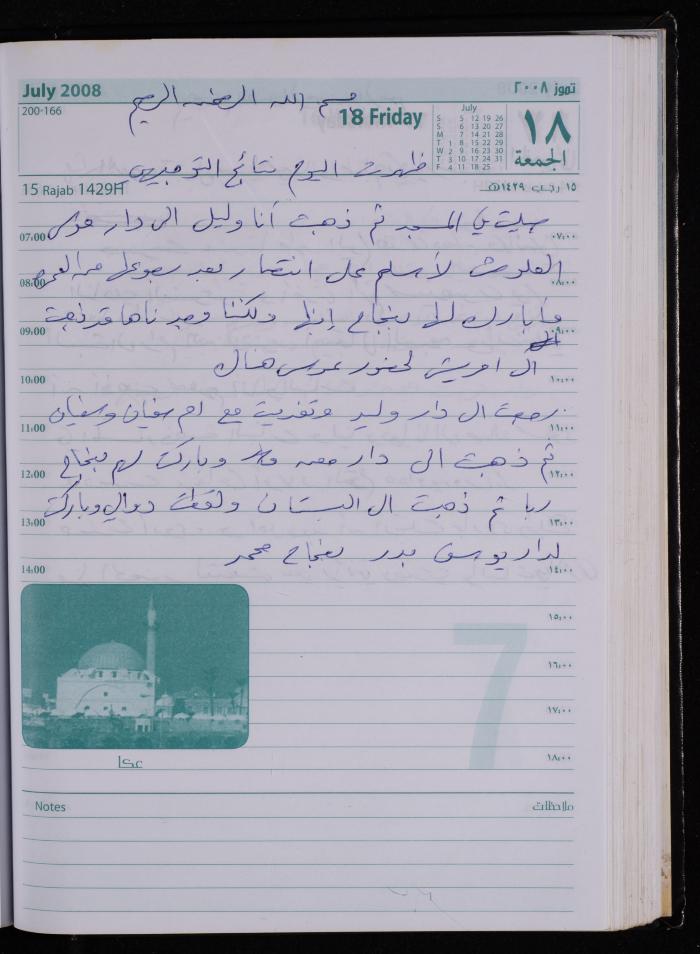 July 2008
تموز ٢٠٠٨
بسم الله الرحمن الرحيم
200-166
18 Friday
July
S 5 12 19 26
S 6 13 20 27
M 7 14 21 28
T 1 8 15 22 29
W 2 9 16 23 30
T 3 10 17 24 31
F 4 11 18 25
١٨
الجمعة
ظهرت اليوم نتائج التوجيهي
15 Rajab 1429H
١٥ رجب ١٤٢٩هـ
صليت في المسجد ثم ذهبت أنا وليل الى دار موسى
07:00
٠٧:٠٠
لأسلم على انتصار بعد رجوعها من العمرة
08:00
٠٨:٠٠
وأبارك لها بنجاح ولكننا وجدناها قد ذهبت
09:00
٠٩:٠٠
آل لحضور عرس هناك
10:00
١٠:٠٠
رجعت ال دار وليد وتغديت مع ام سفيان وسفيان
11:00
١١:٠٠
ثم ذهبت الى دار وباركت لهم بنجاح
12:00
١٢:٠٠
ربا ثم ذهبت ال البستان ولقطت دوالي وباركت
13:00
١٣:٠٠
لدار يوسف بدر بنجاح محمد
14:00
١٤:٠٠
١٥:٠٠
١٦:٠٠
7
١٧:٠٠
١٨:٠٠
عكا
Notes
ملاحظات